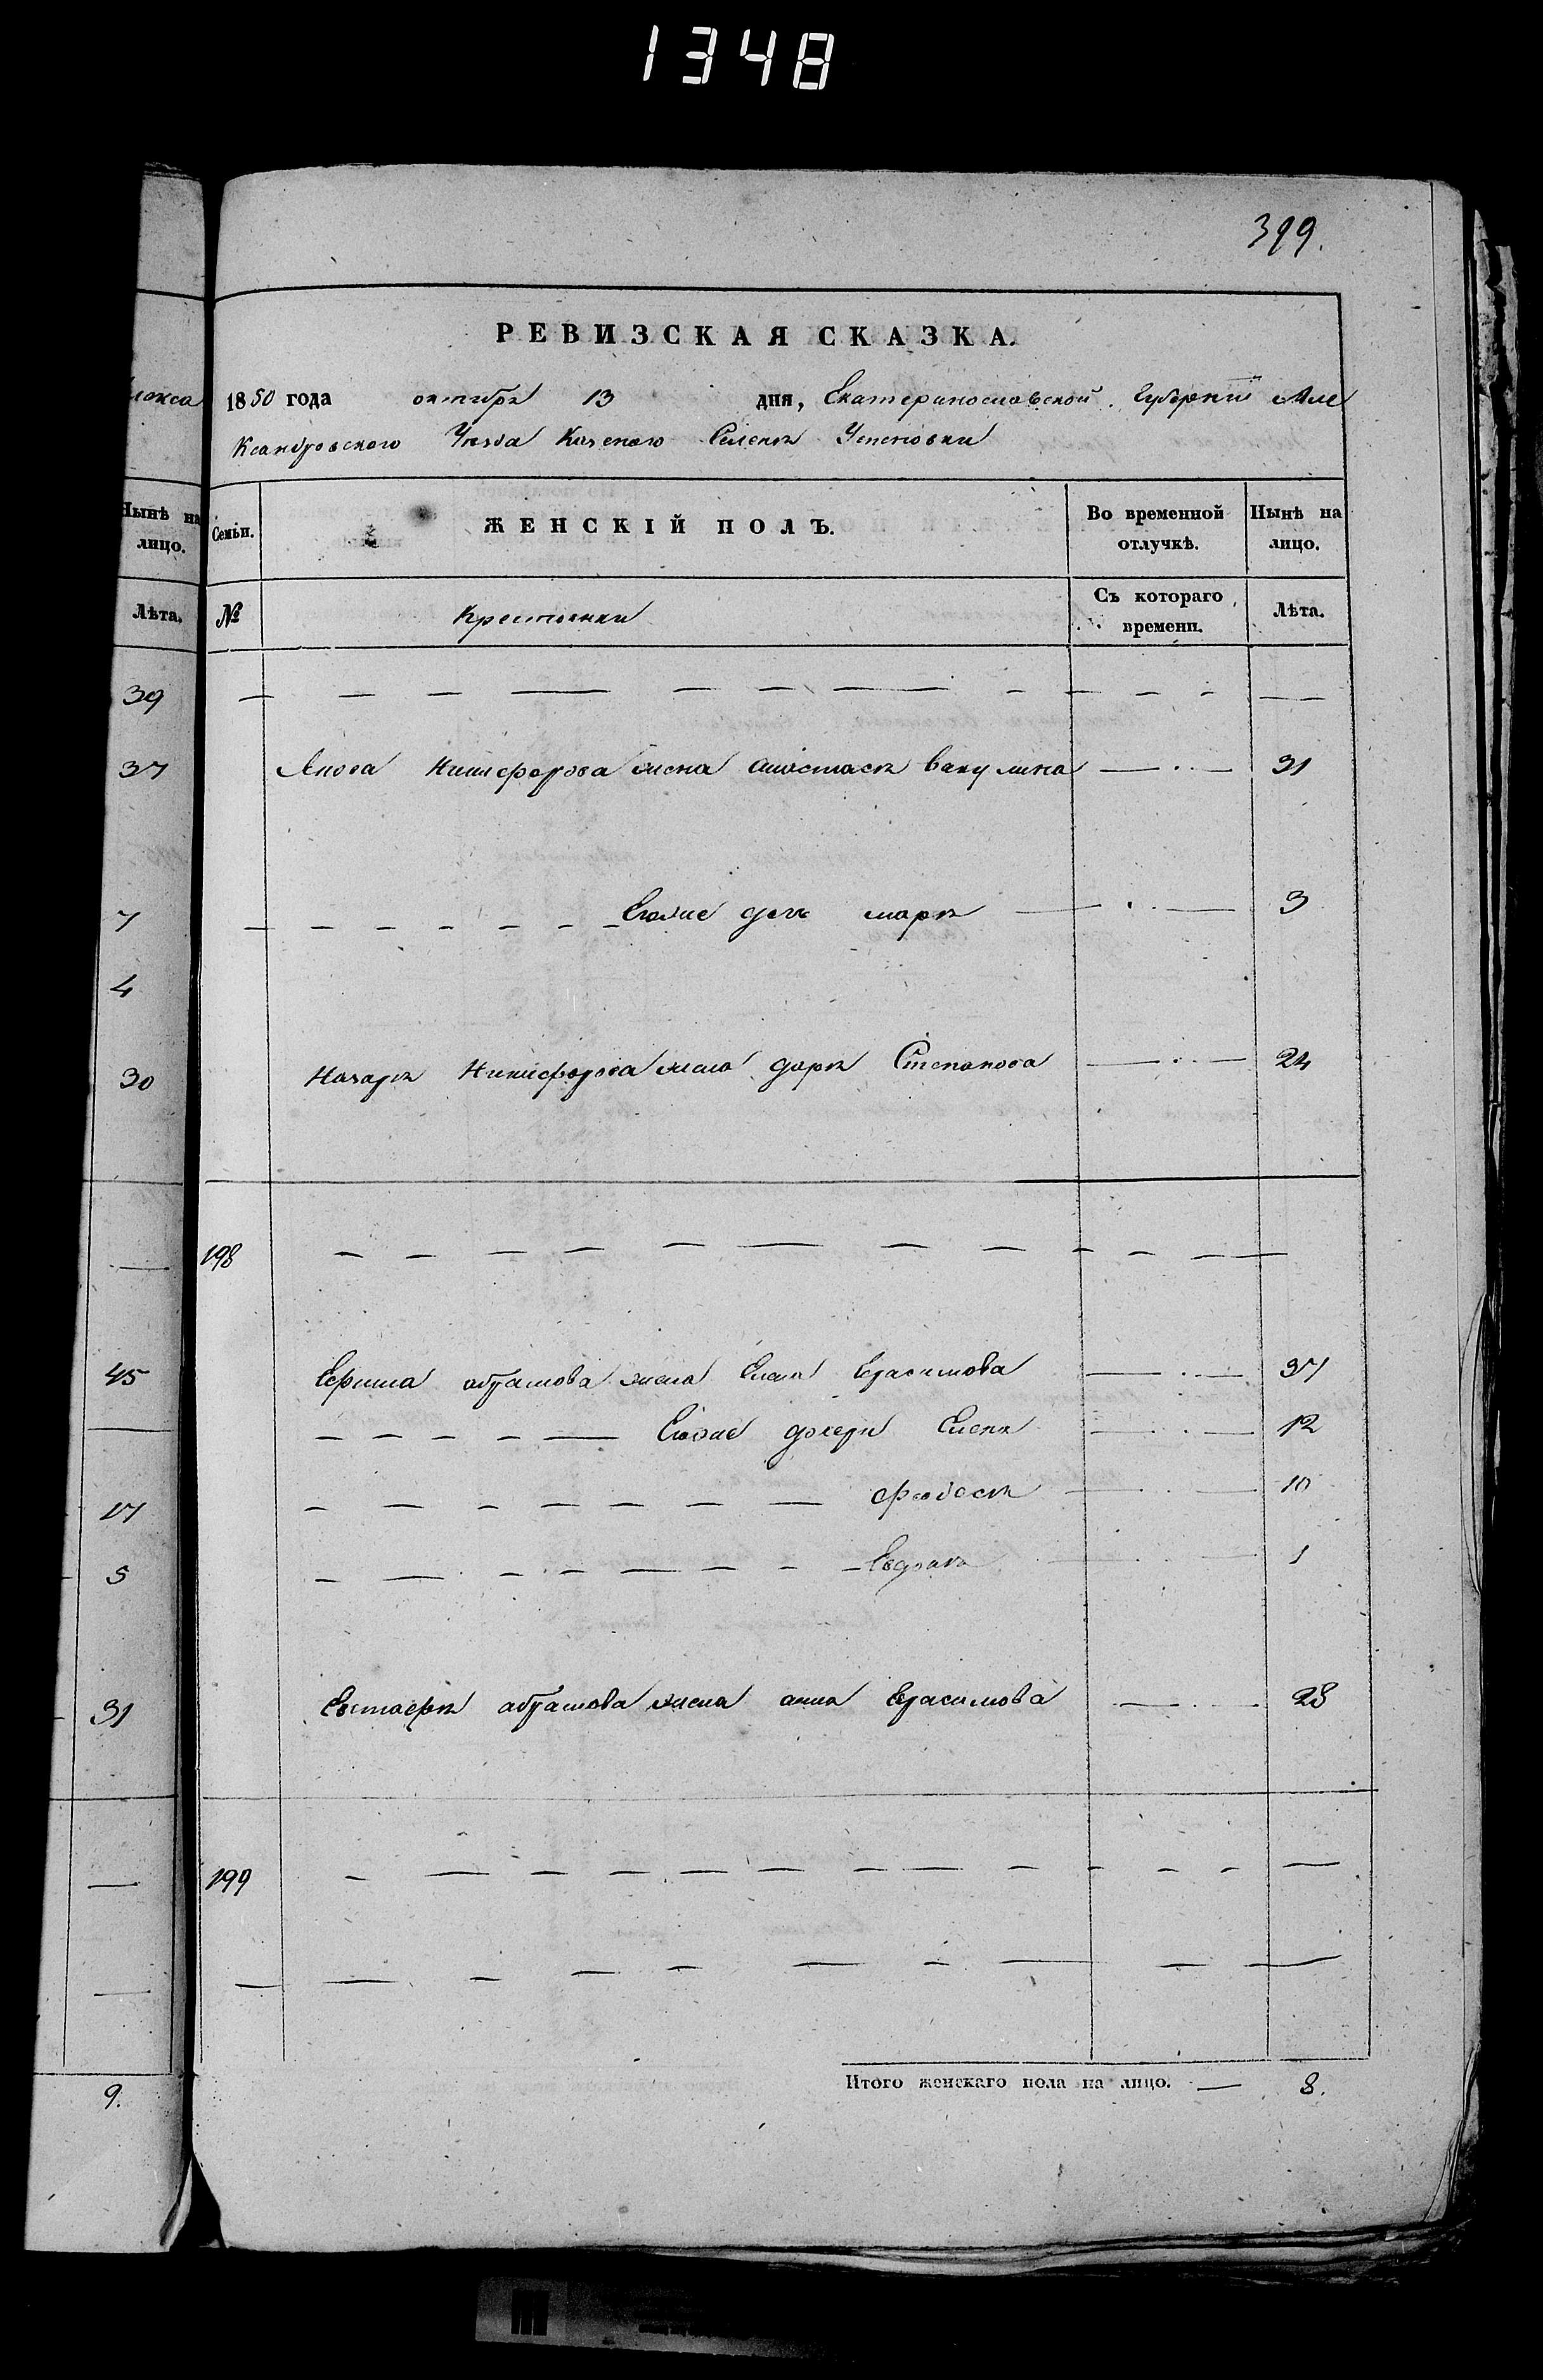 1348
399.
РЕВИЗСКАЯ СКАЗКА.
лакса
1850 года октября 13 дня, Екатеринославской Губерніи Але
ксандровского Уезда Казеного Селенія
Нынѣ на лицо.
Семьи.
ЖЕНСКІЙ ПОЛЪ.
Во временной отлучкѣ.
Нынѣ на лицо.
Лѣта.
№
Крестьянки
Съ котораго времени.
Лѣта.
39
37 Якова Никифорова жена Анастасія Вакулина 31
7 Егоже дочь марія 3
4
30 Назарія Никифорова жена дарія Степанова 24
198
45 Ефима абрамова жена Елена Герасимова 37
Егоже дочери Елена 12
17 феодосія 10
5 Евдокія 1
31 Евстафія абрамова жена анна Герасимова 28
199
9. Итого женскаго пола на лицо. 8.